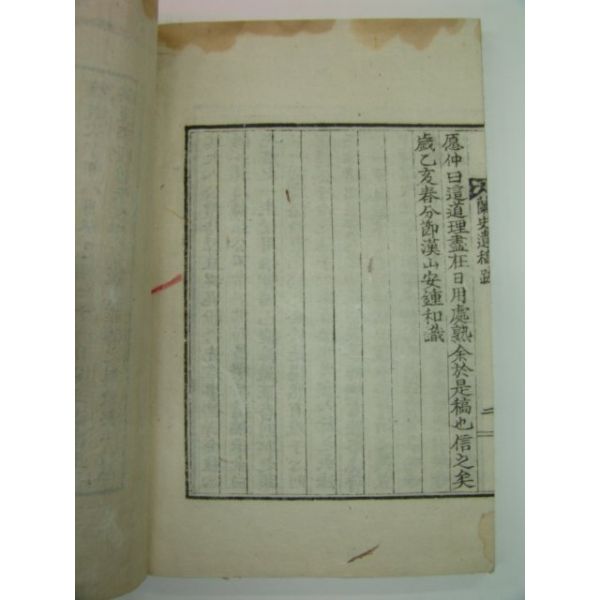 蘭史遺稿 跋
二
愿仲曰這道理盡在日用處熟余於是稿也信之矣
歲乙亥春分節漢山安鍾和識